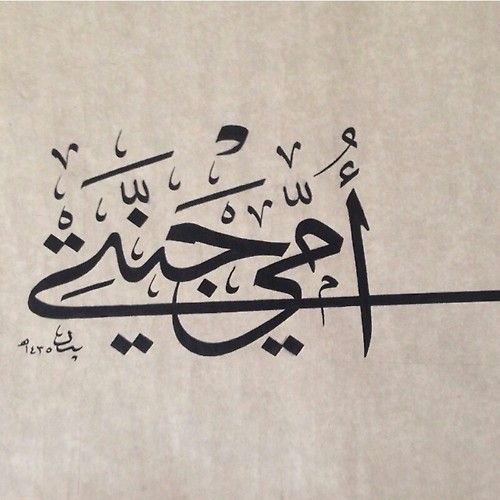 أُمِّي جَنَّتِي
١٤٣٥هـ